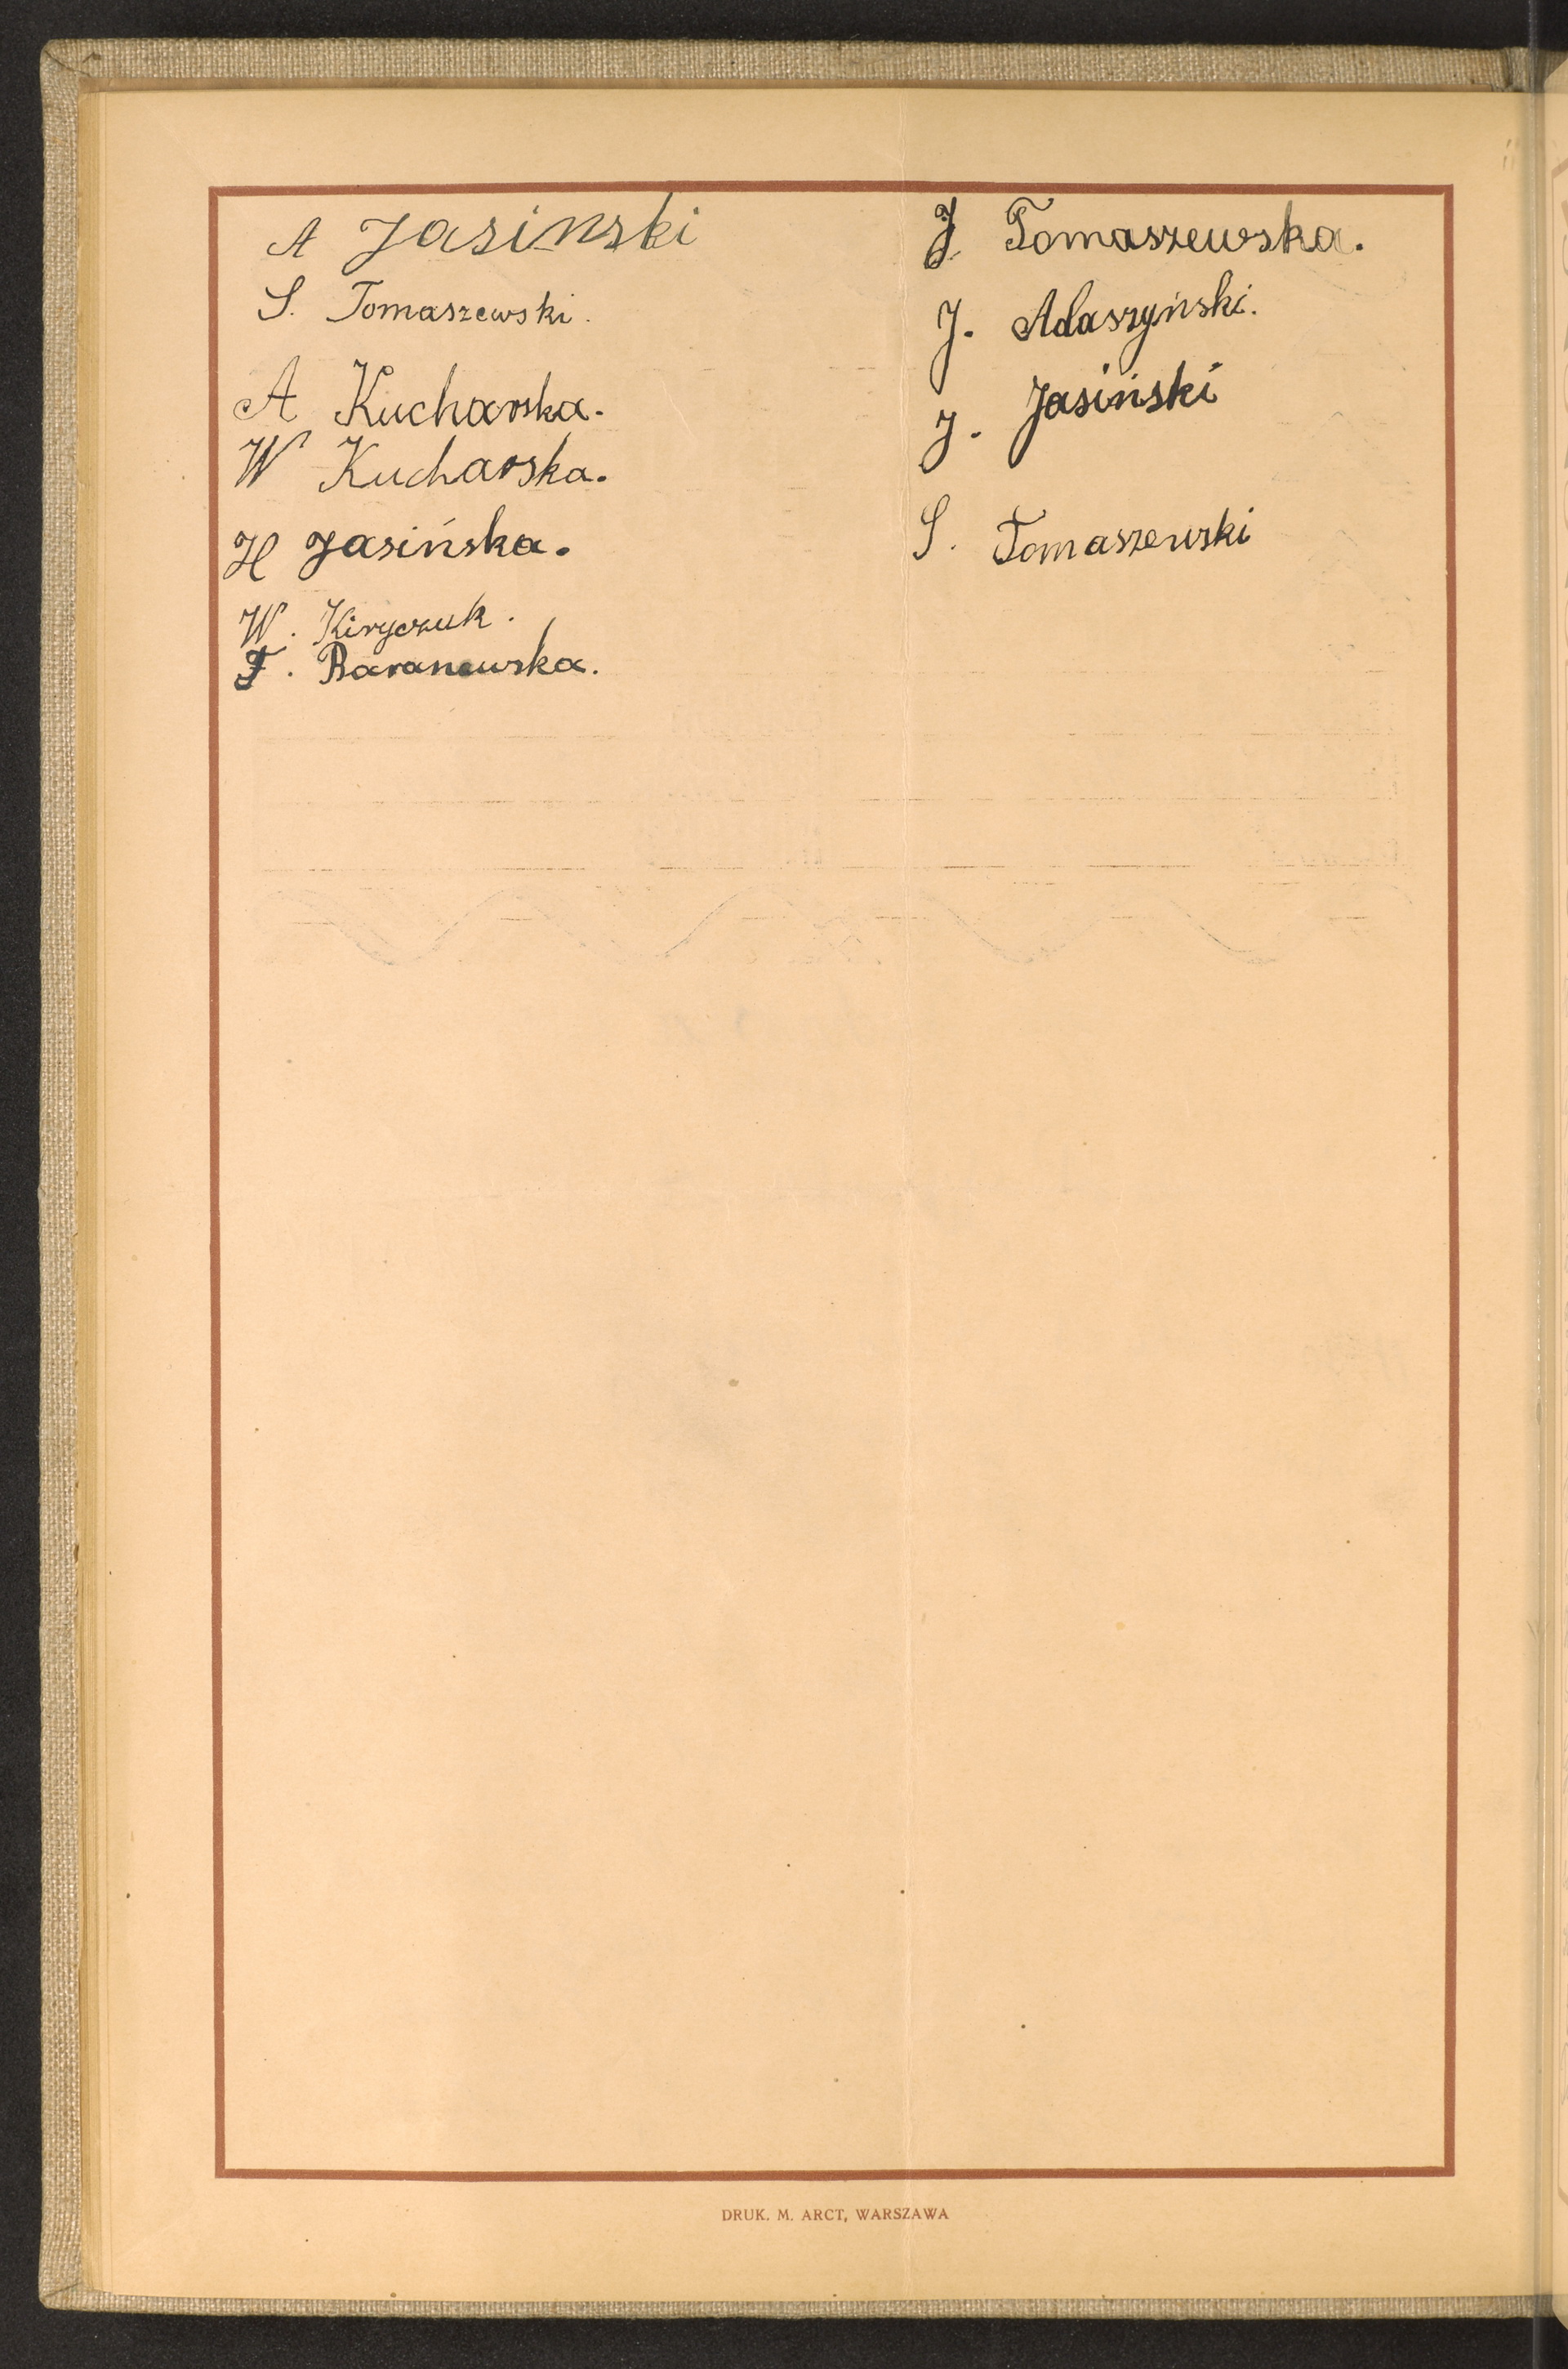 A Jasinski
S. Tomaszewski.
A Kucharska.
W Kucharska.
H Jasińska.
W. Kiryczuk.
F. Baranowska.
J. Tomaszewska.
J. Adaszyński.
J. Jasiński
S. Tomaszewski
DRUK. M. ARCT, WARSZAWA